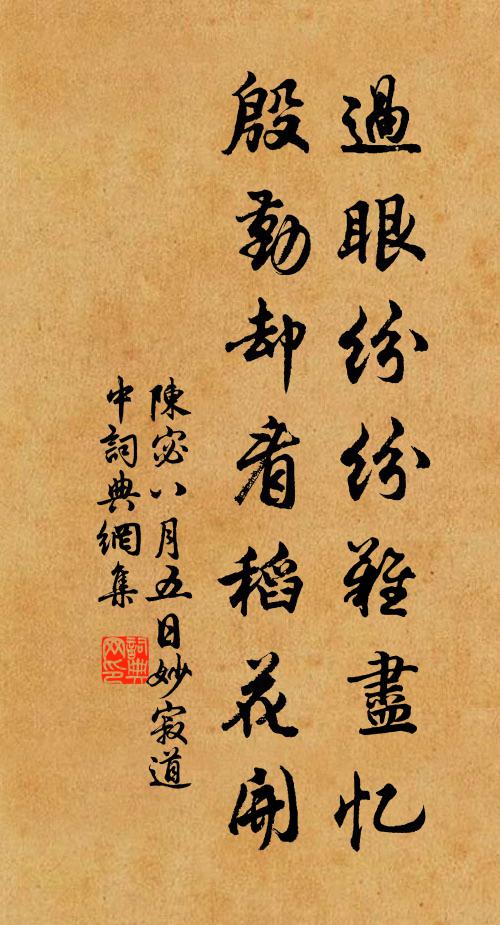 過眼紛紛難盡忆
殷勤却看稻花開
陳宓八月五日妙寂道
中詞典網集
詞典
网印